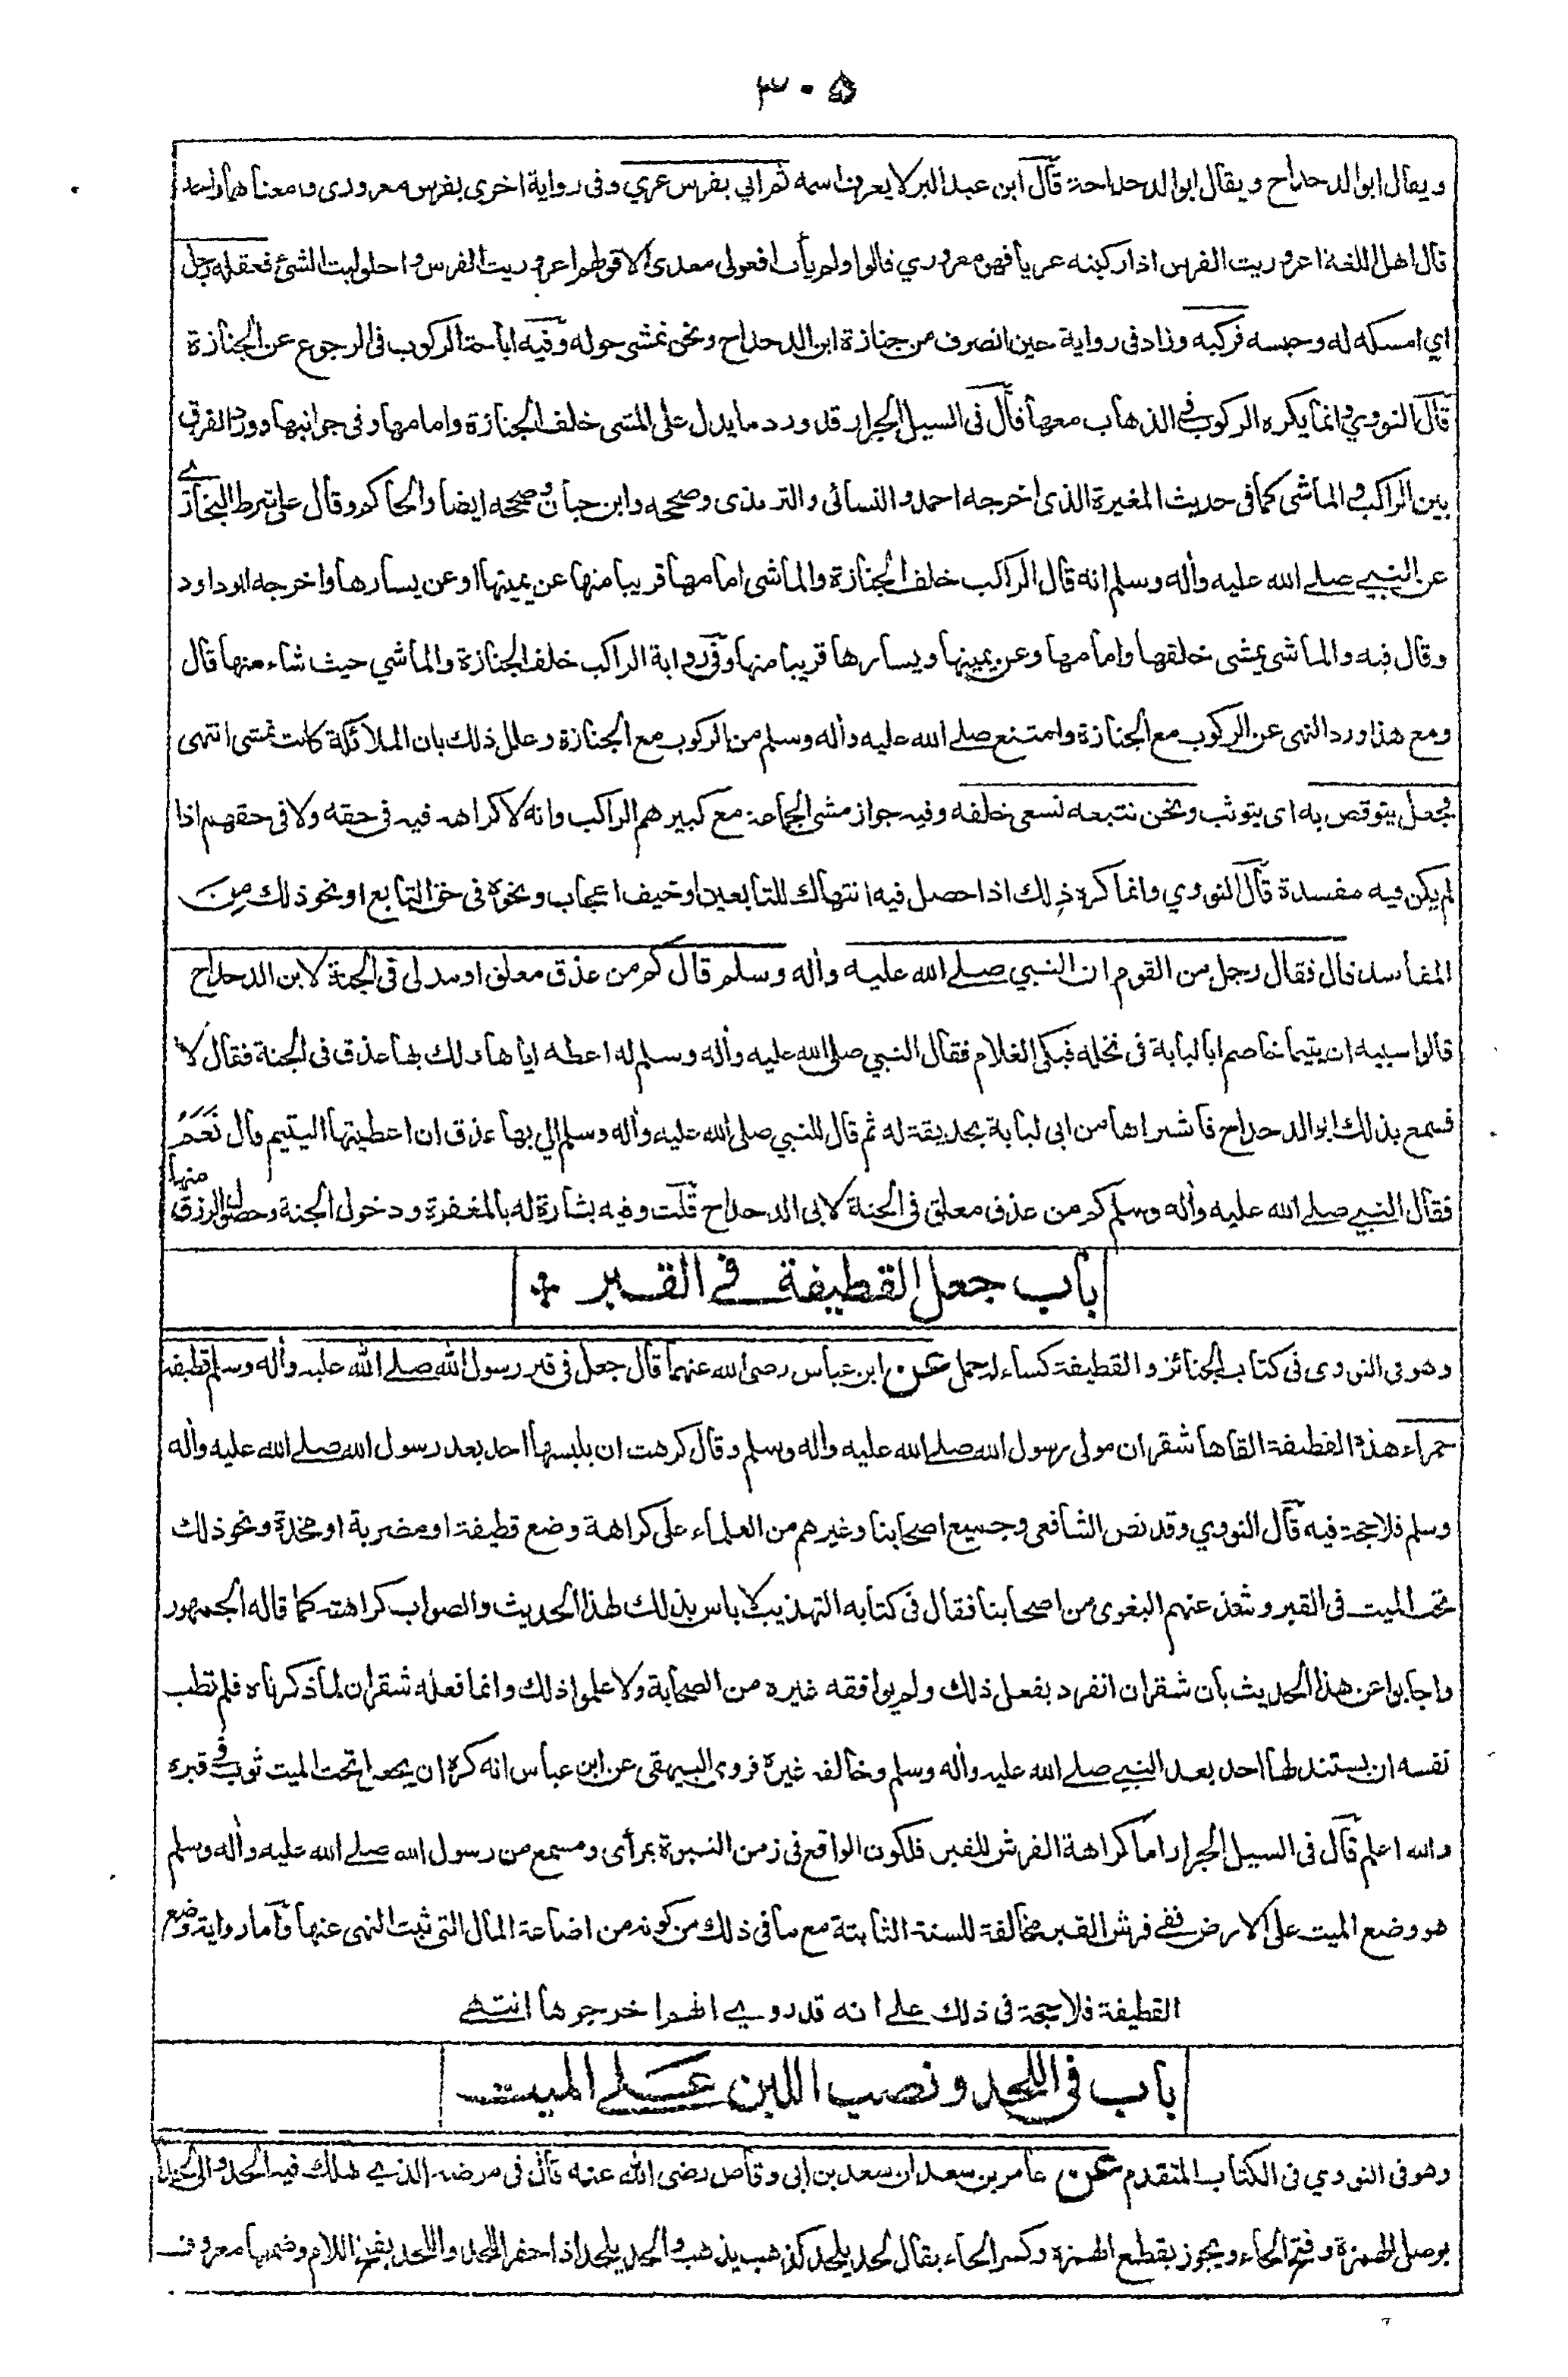 ٣٠٥
ويقال ابو الدحداح ويقال ابو الدحداحة قال ابن عبد البر لا يعرف اسمه ثم اتي بفرس عري وفى رواية اخرى بفرس معرورى ومعناهما واحد
قال اهل اللغة اعروريت الفرس اذا ركبته عريا فهو معروري قالوا ولم يأت افعولى معدى الا قولهم اعروريت الفرس واحلوليت الشئ فعقله رجل
اي امسكه له وحبسه فركبه وزاد فى رواية حين انصرف من جنازة ابن الدحداح ونحن نمشى حوله وفيه اباحة الركوب فى الرجوع عن الجنازة
قال النووي وانما يكره الركوب في الذهاب معها قال فى السيل الجرار قد ورد ما يدل على المشى خلف الجنازة وامامها وفى جوانبها وورد الفرق
بين الراكب والماشى كما فى حديث المغيرة الذى اخرجه احمد والنسائى والترمذى وصححه وابن حبان وصححه ايضا والحاكم وقال على شرط البخاري
عن النبي صلے الله عليه وأله وسلم انه قال الراكب خلف الجنازة والماشى امامها قريبا منها عن يمينها او عن يسارها واخرجه ابو داود
وقال فيه والماشى يمشى خلفها وامامها وعن يمينها ويسارها قريبا منها وفى رواية الراكب خلف الجنازة والماشي حيث شاء منها قال
ومع هذا ورد النهى عن الركوب مع الجنازة وامتنع صلے الله عليه وأله وسلم من الركوب مع الجنازة وعلل ذلك بان الملائكة كانت تمشى انتهى
فجعل يتوقص به اى يتوثب ونحن نتبعه نسعى خلفه وفيه جواز مشى الجماعة مع كبيرهم الراكب وانه لا كراهه فيه فى حقه ولا فى حقهم اذا
لم يكن فيه مفسدة قال النووي وانما كره ذلك اذا حصل فيه انتهاك للتابعين او خيف اعجاب ونحوه فى حق التابع او نحو ذلك من
المفاسد قال فقال رجل من القوم ان النبي صلے الله عليه وأله وسلم قال كم من عذق معلق او مدلى فى الجنة لابن الدحداح
قالوا سببه ان يتيما خاصم ابا لبابة فى نخله فبكى الغلام فقال النبي صلى الله عليه وأله وسلم له اعطه اياها ولك بها عذق فى الجنة فقال لا
فسمع بذلك ابو الدحداح فاشتراها من ابى لبابة بحديقة له ثم قال للنبي صلى الله عليه وأله وسلم الي بها عذق ان اعطيتها اليتيم قال نَعَمْ
فقال النبي صلے الله عليه وأله وسلم كم من عذق معلق فى الجنة لابى الدحداح قلت وفيه بشارة له بالمغفرة ودخول الجنة وحصول الرزق منها
باب جعل القطيفة في القبر
وهو فى النووى فى كتاب الجنائز والقطيفة كساء له خمل عن ابن عباس رضى الله عنهما قال جعل فى قبر رسول الله صلے الله عليه وأله وسلم قطيفة
حمراء هذه القطيفة القاها شقران مولى رسول الله صلے الله عليه وأله وسلم وقال كرهت ان يلبسها احد بعد رسول الله صلے الله عليه وأله
وسلم فلا حجة فيه قال النووي وقد نص الشافعى وجميع اصحابنا وغيرهم من العلماء على كراهة وضع قطيفة او مضربة او مخدة ونحو ذلك
تحت الميت فى القبر وشذ عنهم البغوى من اصحابنا فقال فى كتابه التهذيب لا باس بذلك لهذا الحديث والصواب كراهته كما قاله الجمهور
واجابوا عن هذا الحديث بأن شقران انفرد بفعل ذلك ولم يوافقه غيره من الصحابة ولا علموا ذلك وانما فعله شقران لما ذكرناه فلم تطب
نفسه ان يستند لها احد بعد النبي صلے الله عليه وأله وسلم وخالفه غيره فروى البيهقى عن ابن عباس انه كره ان يجعل تحت الميت ثوب فى قبره
والله اعلم قال فى السيل الجرار اما كراهة الفرش للقبر فلكون الواقع فى زمن النبوة بمرأى ومسمع من رسول الله صلے الله عليه وأله وسلم
هو وضع الميت على الارض ففے فرش القبر مخالفة للسنة الثابتة مع ما فى ذلك من كونه من اضاعة المال التى ثبت النهى عنها واما رواية وضع
القطيفة فلا حجة فى ذلك علے انه قد روي انهم اخرجوها انتهى
باب فى اللحد ونصب اللبن على الميت
وهو فى النووي فى الكتاب المتقدم عن عامر بن سعد ان سعد بن ابى وقاص رضى الله عنه قال فى مرضه الذي هلك فيه الحدوا لى لحدا
بوصل الهمزة وفتح الحاء ويجوز بقطع الهمزة وكسر الحاء يقال لحد يلحد كذهب يذهب والحد يلحد اذا حفر اللحد واللحد بفتح اللام وضمها معروف